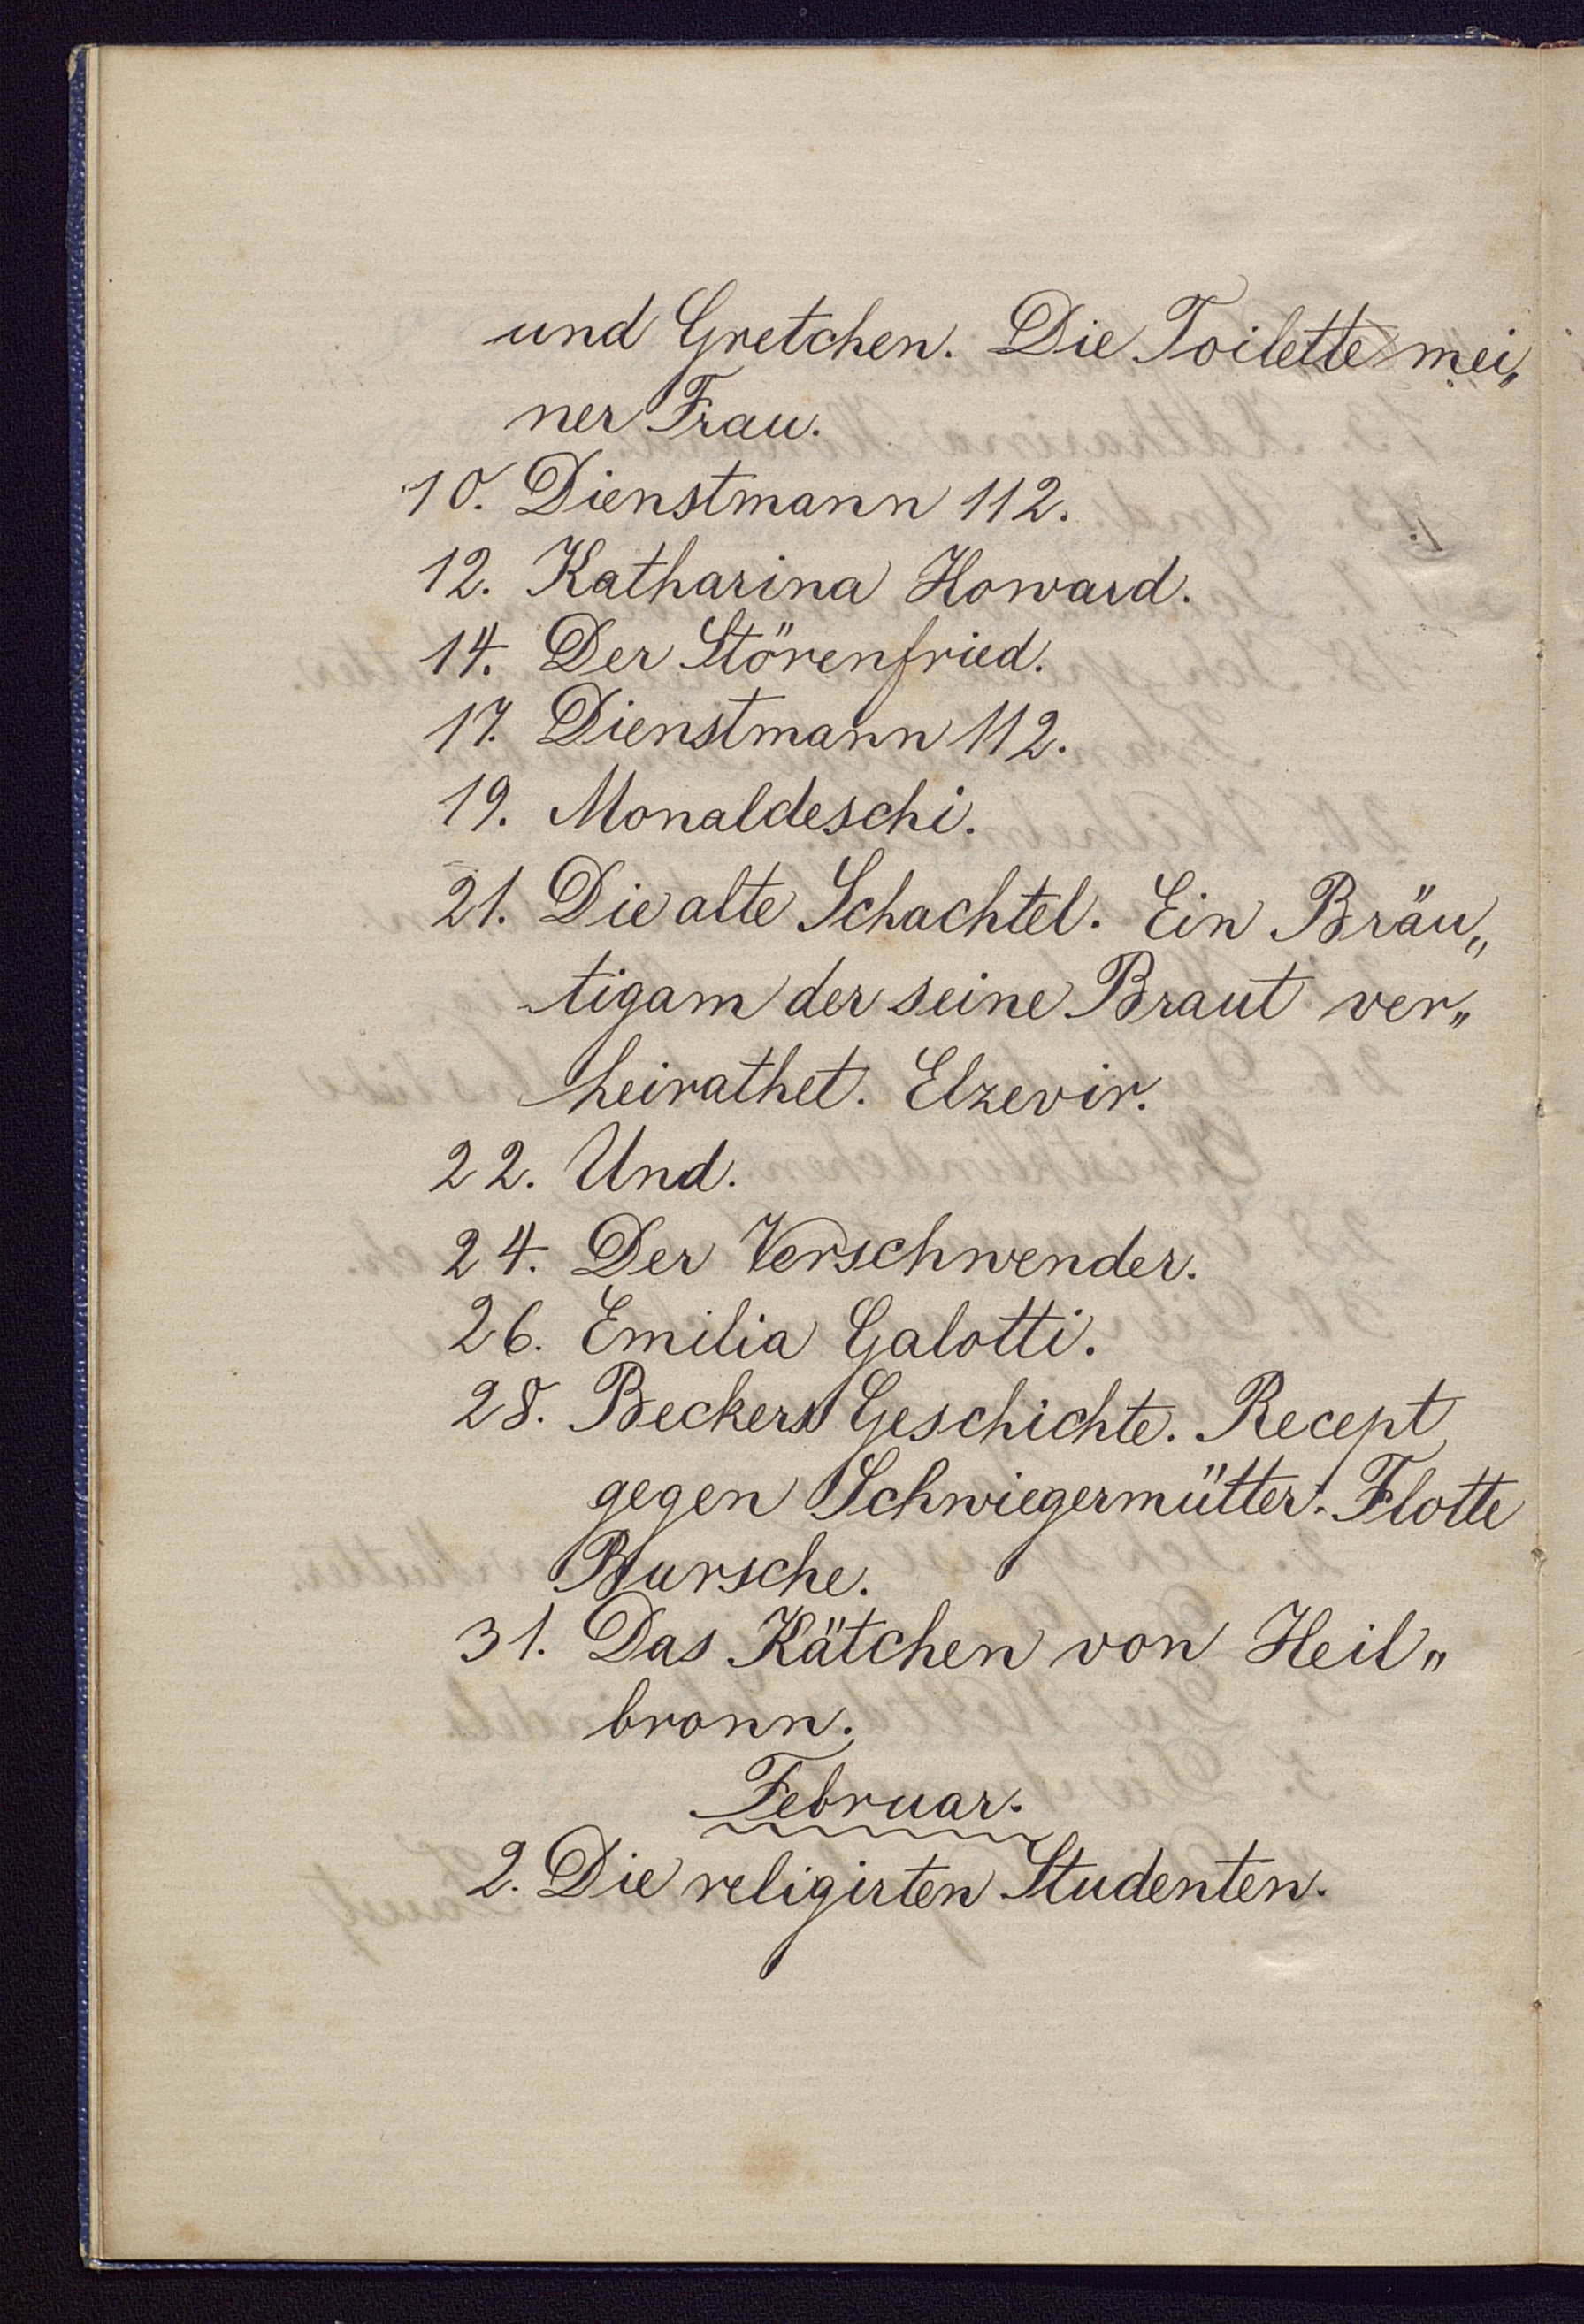 und Gretchen. Die Toilette mei„
ner Frau.
10. Dienstmann 112.
12. Katharina Howard.
14. Der Störenfried.
17. Dienstmann 112.
19. Monaldeschi.
21. Die alte Schachtel. Ein Bräu„
tigam der seine Braut ver„
heirathet. Elzevir.
22. Und.
24. Der Verschwender.
26. Emilia Galotti.
28. Beckers Geschichte. Recept
gegen Schwiegermütter. Flotte
Bursche.
31. Das Kätchen von Heil„
bronn.
Februar.
2. Die religirten Studenten.